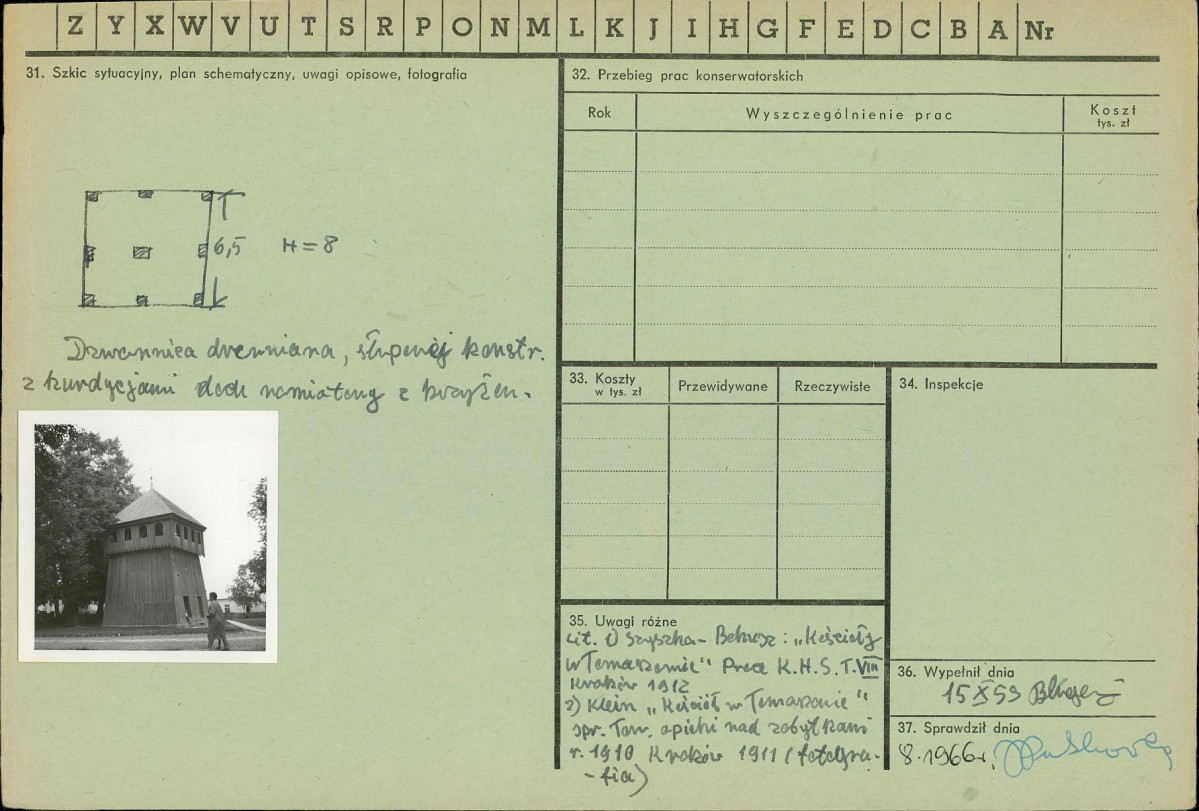 Z Y X W V U T S R P O N M L K J I H G F E D C B A Nr
31. Szkic sytuacyjny, plan schematyczny, uwagi opisowe, fotografia
6,5 H = 8
Dzwonnica drewniana, słupowej konstr.
z kurdycjami dach namiotowy z krzyżem.
32. Przebieg prac konserwatorskich
Rok Wyszczególnienie prac Koszt
tys. zł
33. Koszty Przewidywane Rzeczywiste
w tys. zł
34. Inspekcje
35. Uwagi różne
Lit. 1) Szyszko-Bohusz: „Kościoły
w Tomaszowie" Prace K.H.S. T. VIII
Kraków 1912
2) Klein „Kościół w Tomaszowie"
spr. Tow. opieki nad zabytkami
r. 1910 Kraków 1911 (fotogra-
-fia)
36. Wypełnił dnia
15 X 59
37. Sprawdził dnia
8.1966r.